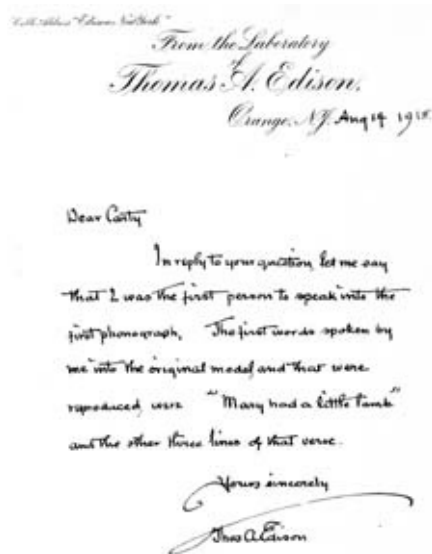 Cable Address "Edison, New York"
From the Laboratory
of
Thomas A. Edison,
Orange, N.J. Aug 14 191
Dear Carty
In reply to your question, let me say
that I was the first person to speak into the
first phonograph. The first words spoken by
me into the original model and that were
reproduced were "Mary had a little lamb"
and the other three lines of that verse.
Yours sincerely
Thos A Edison